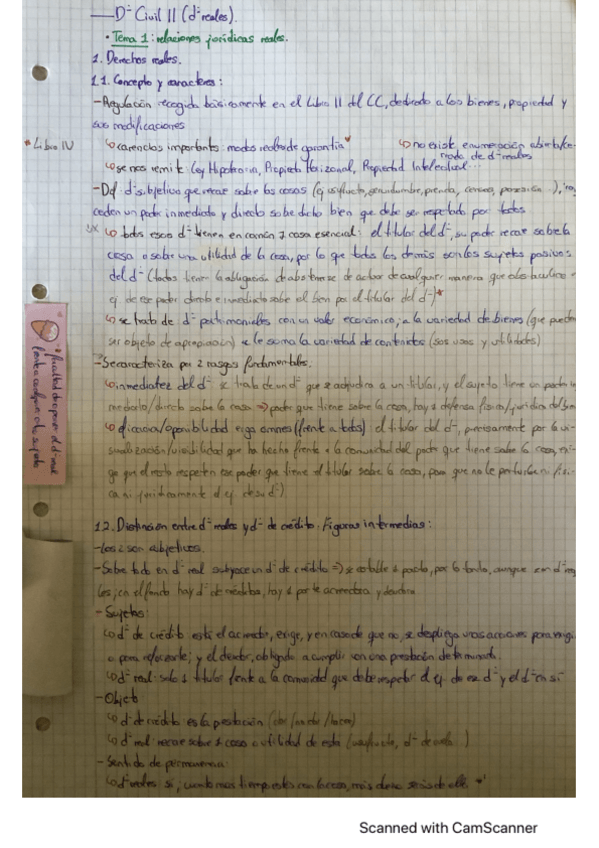 Dº Civil II (dº reales).
• Tema 1: relaciones jurídicas reales.
1. Derechos reales.
1.1. Concepto y caracteres:
- Regulación recogida básicamente en el Libro II del CC, dedicado a los bienes, propiedad y
sus modificaciones
* Libro IV
↳ carencias importantes: modos reales de garantía *
↳ no existe enumeración abierta/ce-
rrada de dº reales
↳ se nos remite: Ley Hipotecaria, Propiedad Horizontal, Propiedad Intelectual...
- Def: dº subjetivo que recae sobre las cosas (ej usufructo, servidumbre, prenda, censos, posesión...),
ceden un poder inmediato y directo sobre dicho bien que debe ser respetado por todos
↳ todos esos dº tienen en común 1 cosa esencial: el titular del dº, su poder recae sobre la
cosa o sobre una utilidad de la cosa, por lo que todos los demás son los sujetos pasivos
del dº (todos tienen la obligación de abstenerse de actuar de cualquier manera que obstaculice
ej. de ese poder directo e inmediato sobre el bien por el titular del dº) *
↳ se trata de dº patrimoniales con un valor económico; a la variedad de bienes (que pueden
ser objeto de apropiación) se le suma la variedad de contenidos (sus usos y utilidades)
- Se caracteriza por 2 rasgos fundamentales:
↳ inmediatez del dº: se trata de un dº que se adjudica a un titular, y el sujeto tiene un poder in
mediato/directo sobre la cosa => poder que tiene sobre la cosa, hay 1 defensa física/jurídica del bien
↳ eficacia/oponibilidad erga omnes (frente a todos): el titular del dº, precisamente por la vi-
sualización/visibilidad que ha hecho frente a la comunidad del poder que tiene sobre la cosa, exi-
ge que el resto respeten ese poder que tiene el titular sobre la cosa, para que no le perturben ni físi-
ca ni jurídicamente el ej de su dº)
* facultad de oponer el dº real
frente a cualquier otro sujeto
1.2. Distinción entre dº reales y dº de crédito. Figuras intermedias:
- Los 2 son subjetivos.
- Sobre todo en dº real subyace un dº de crédito => se establece 1 pacto, por lo tanto, aunque son dº rea
les, en el fondo hay dº de crédito, hay 1 parte acreedora y deudora
- Sujetos:
↳ dº de crédito está el acreedor, exige, y en caso de que no, se despliega unas acciones para exigir
o para reforzarle; y el deudor, obligado a cumplir con una prestación determinada.
↳ dº real: solo 1 titular frente a la comunidad que debe respetar el ej de ese dº y el dº en sí
- Objeto
↳ dº de crédito es la prestación (dar/no dar/hacer)
↳ dº real: recae sobre 1 cosa o utilidad de esta (usufructo, dº de vuelo...)
- Sentido de permanencia:
↳ dº reales sí; cuanto más tiempo estés con la cosa, más
Scanned with CamScanner